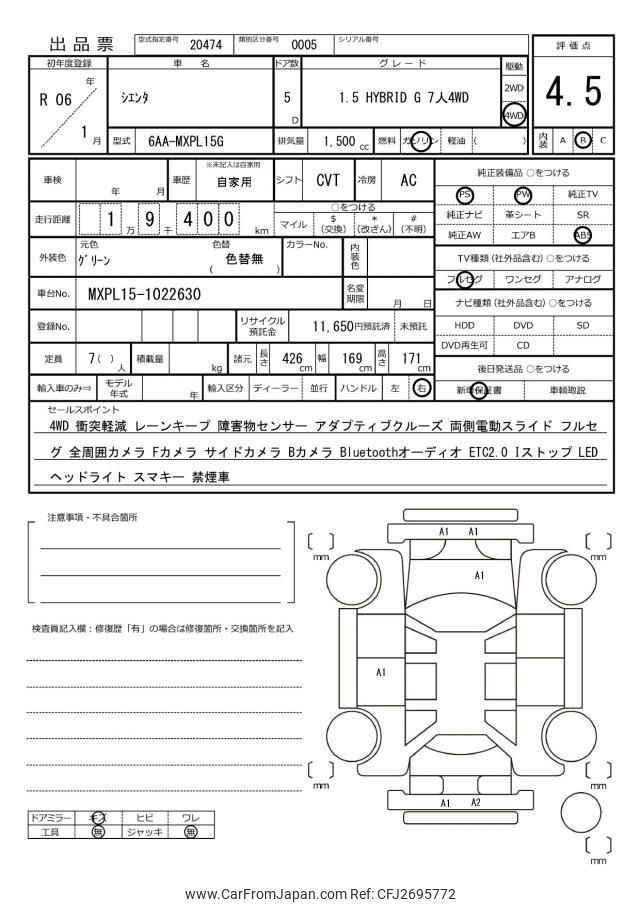 出品票 型式指定番号 20474 類別区分番号 0005 シリアル番号
評価点
4.5
内装 A B C
初年度登録 車名 ドア数 グレード 駆動
R 06 年 1 月 シエンタ 5 D 1.5 HYBRID G 7人4WD 2WD 4WD
型式 6AA-MXPL15G 排気量 1,500 cc 燃料 ガソリン 軽油 ( )
車検 年 月 車歴 ※未記入は自家用 自家用 シフト CVT 冷房 AC
走行距離 1 万 9 千 4 0 0 km
○をつける
マイル $ (交換) * (改ざん) # (不明)
外装色 元色 グリーン 色替 ( 色替無 ) カラーNo. 内装色
車台No. MXPL15-1022630 名変期限 月 日
登録No. リサイクル預託金 11,650円預託済 未預託
定員 7( ) 人 積載量 kg 諸元 長さ 426 cm 幅 169 cm 高さ 171 cm
輸入車のみ⇒ モデル年式 年 輸入区分 ディーラー 並行 ハンドル 左 右
純正装備品 ○をつける
PS PW 純正TV
純正ナビ 革シート SR
純正AW エアB ABS
TV種類 (社外品含む) ○をつける
フルセグ ワンセグ アナログ
ナビ種類 (社外品含む) ○をつける
HDD DVD SD
DVD再生可 CD
後日発送品 ○をつける
新車保証書 車輌取説
セールスポイント
4WD 衝突軽減 レーンキープ 障害物センサー アダプティブクルーズ 両側電動スライド フルセ
グ 全周囲カメラ Fカメラ サイドカメラ Bカメラ Bluetoothオーディオ ETC2.0 Iストップ LED
ヘッドライト スマキー 禁煙車
注意事項・不具合箇所
検査員記入欄：修復歴「有」の場合は修復箇所・交換箇所を記入
A1 A1
mm mm
A1
A1
mm mm
A1 A2
mm
ドアミラー キズ ヒビ ワレ
工具 無 ジャッキ 無
www.CarFromJapan.com Ref: CFJ2695772